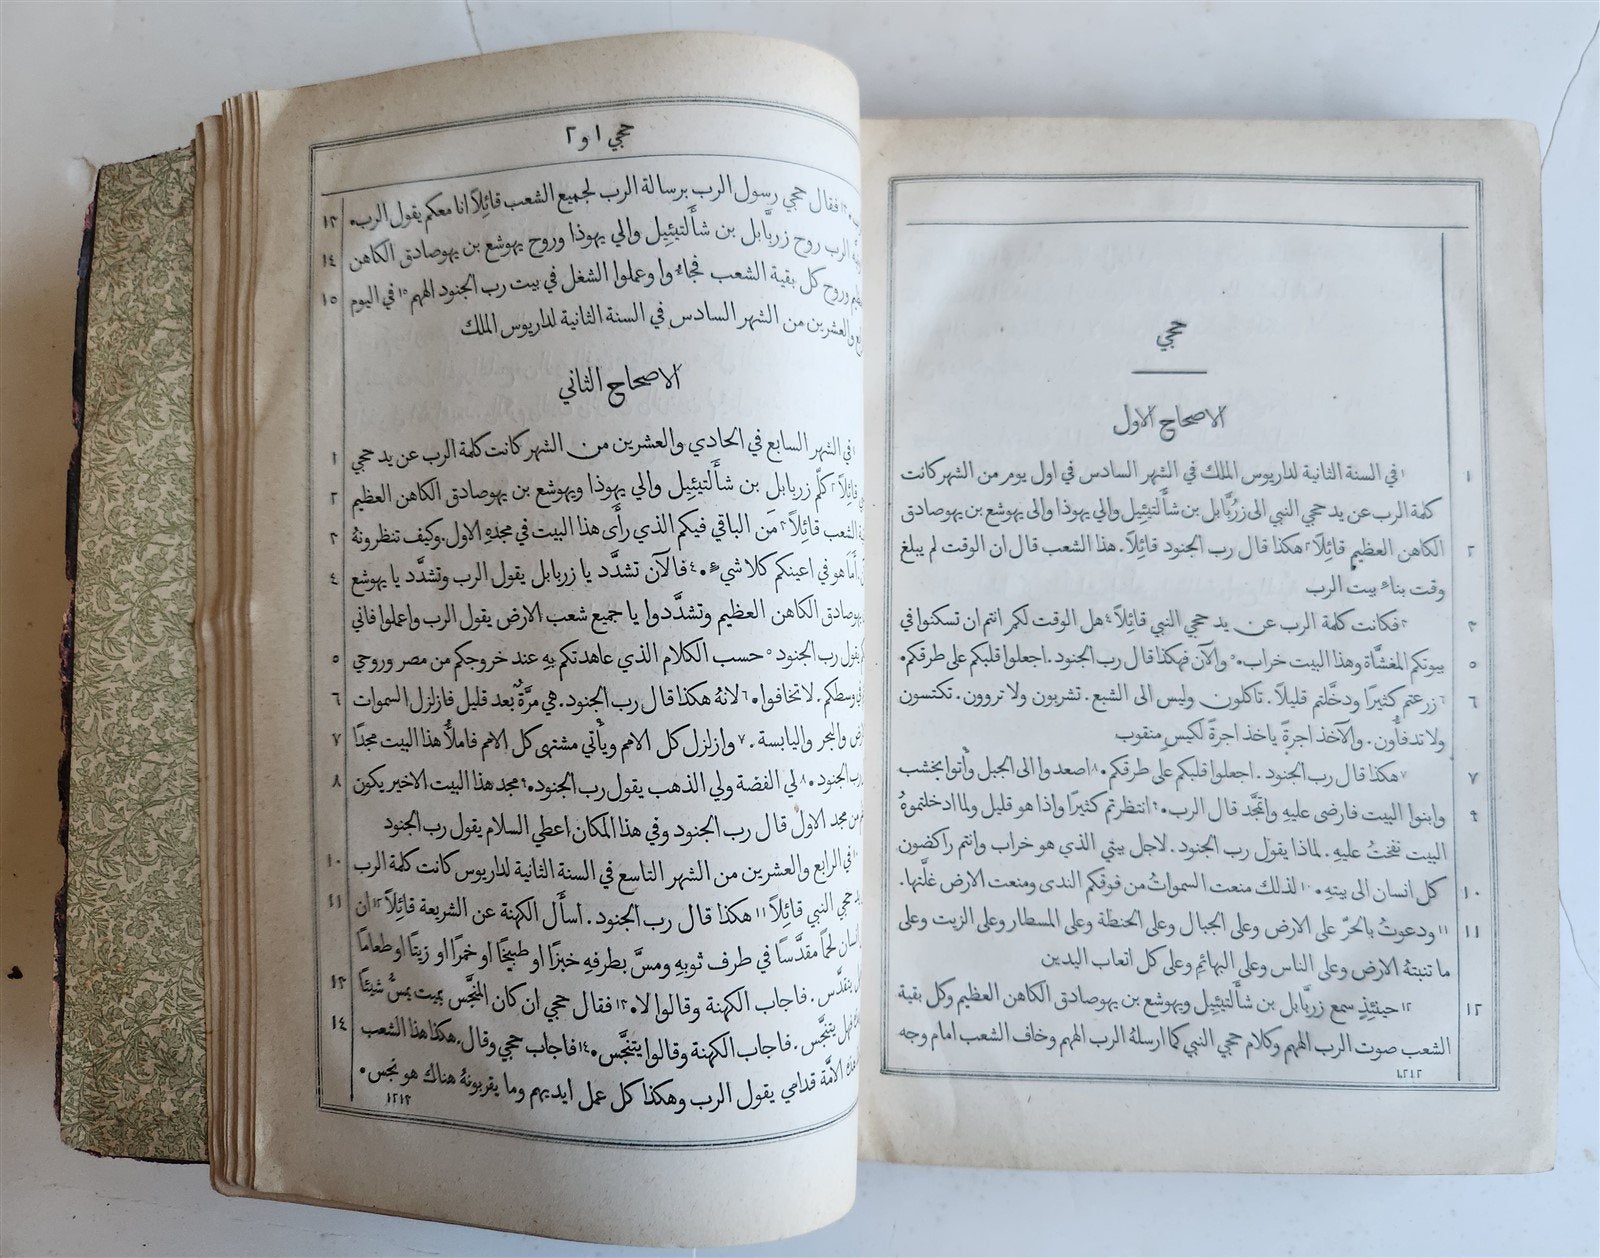 حجي
الاصحاح الاول
١ ١ في السنة الثانية لداريوس الملك في الشهر السادس في اول يوم من الشهر كانت
كلمة الرب عن يد حجي النبي الى زرُبَّابل بن شأَلتيئيل والي يهوذا والى يهوشع بن يهوصادق
٢ الكاهن العظيم قائِلاً ٢ هكذا قال رب الجنود قائِلاً. هذا الشعب قال ان الوقت لم يبلغ
وقت بناء بيت الرب
٣ ٣ فكانت كلمة الرب عن يد حجي النبي قائِلاً ٤ هل الوقت لكم انتم ان تسكنوا في
٥ بيوتكم المغشَّاة وهذا البيت خراب. ٥ والآن فهكذا قال رب الجنود. اجعلوا قلبكم على طرقكم.
٦ ٦ زرعتم كثيرًا ودخَّلتم قليلاً. تاكلون وليس الى الشبع. تشربون ولا تروون. تكتسون
ولا تدفأُون. والآخذ اجرةً ياخذ اجرةً لكيسٍ منقوب
٧ ٧ هكذا قال رب الجنود. اجعلوا قلبكم على طرقكم. ٨ اصعدوا الى الجبل وأْتوا بخشب
٩ وابنوا البيت فارضى عليهِ واتمجَّد قال الرب. ٩ انتظرتم كثيرًا واذا هو قليل ولما ادخلتموهُ
البيت نفختُ عليهِ. لماذا يقول رب الجنود. لاجل بيتي الذي هو خراب وانتم راكضون
١٠ كل انسان الى بيتهِ. ١٠ لذلك منعت السموات من فوقكم الندى ومنعت الارض غلَّتها.
١١ ١١ ودعوتُ بالحرّ على الارض وعلى الجبال وعلى الحنطة وعلى المسطار وعلى الزيت وعلى
ما تنبتهُ الارض وعلى الناس وعلى البهائِم وعلى كل اتعاب اليدين
١٢ ١٢ حينئِذٍ سمع زربَّابل بن شأَلتيئِيل ويهوشع بن يهوصادق الكاهن العظيم وكل بقية
الشعب صوت الرب الههم وكلام حجي النبي كما ارسلهُ الرب الههم وخاف الشعب امام وجه
١٢١٢
حجي ١ و ٢
١٣ ١٣ فقال حجي رسول الرب برسالة الرب لجميع الشعب قائِلاً انا معكم يقول الرب.
١٤ الرب روح زربَّابل بن شأَلتيئِيل والي يهوذا وروح يهوشع بن يهوصادق الكاهن
١٥ وروح كل بقية الشعب فجاءُوا وعملوا الشغل في بيت رب الجنود الههم ١٥ في اليوم
والعشرين من الشهر السادس في السنة الثانية لداريوس الملك
الاصحاح الثاني
١ ١ في الشهر السابع في الحادي والعشرين من الشهر كانت كلمة الرب عن يد حجي
٢ قائِلاً ٢ كلّم زربابل بن شأَلتيئِيل والي يهوذا ويهوشع بن يهوصادق الكاهن العظيم
٣ الشعب قائِلاً ٣ مَن الباقي فيكم الذي رأَى هذا البيت في مجدهِ الاول. وكيف تنظرونهُ
٤ أَمَا هو في اعينكم كلا شيءٍ. ٤ فالآن تشدَّد يا زربابل يقول الرب وتشدَّد يا يهوشع
يهوصادق الكاهن العظيم وتشدَّدوا يا جميع شعب الارض يقول الرب واعملوا فاني
٥ يقول رب الجنود ٥ حسب الكلام الذي عاهدتكم بهِ عند خروجكم من مصر وروحي
٦ في وسطكم. لا تخافوا. ٦ لانهُ هكذا قال رب الجنود. هي مرَّةٌ بعد قليل فازلزل السموات
٧ والبحر واليابسة. ٧ وازلزل كل الامم ويأْتي مشتهى كل الامم فاملأُ هذا البيت مجدًا
٨ رب الجنود. ٨ لي الفضة ولي الذهب يقول رب الجنود. ٩ مجد هذا البيت الاخير يكون
من مجد الاول قال رب الجنود وفي هذا المكان اعطي السلام يقول رب الجنود
١٠ ١٠ في الرابع والعشرين من الشهر التاسع في السنة الثانية لداريوس كانت كلمة الرب
١١ حجي النبي قائِلاً ١١ هكذا قال رب الجنود. اسأَل الكهنة عن الشريعة قائِلاً ١٢ ان
انسان لحمًا مقدَّسًا في طرف ثوبهِ ومسَّ بطرفهِ خبزًا او طبيخًا او خمرًا او زيتًا او طعامًا
١٣ يتقدَّس. فاجاب الكهنة وقالوا لا. ١٣ فقال حجي ان كان المنجَّس بميت يمسُّ شيئًا
١٤ فهل يتنجَّس. فاجاب الكهنة وقالوا يتنجَّس. ١٤ فاجاب حجي وقال. هكذا هذا الشعب
الامَّة قدامي يقول الرب وهكذا كل عمل ايديهم وما يقربونهُ هناك هو نجس.
١٢١٣